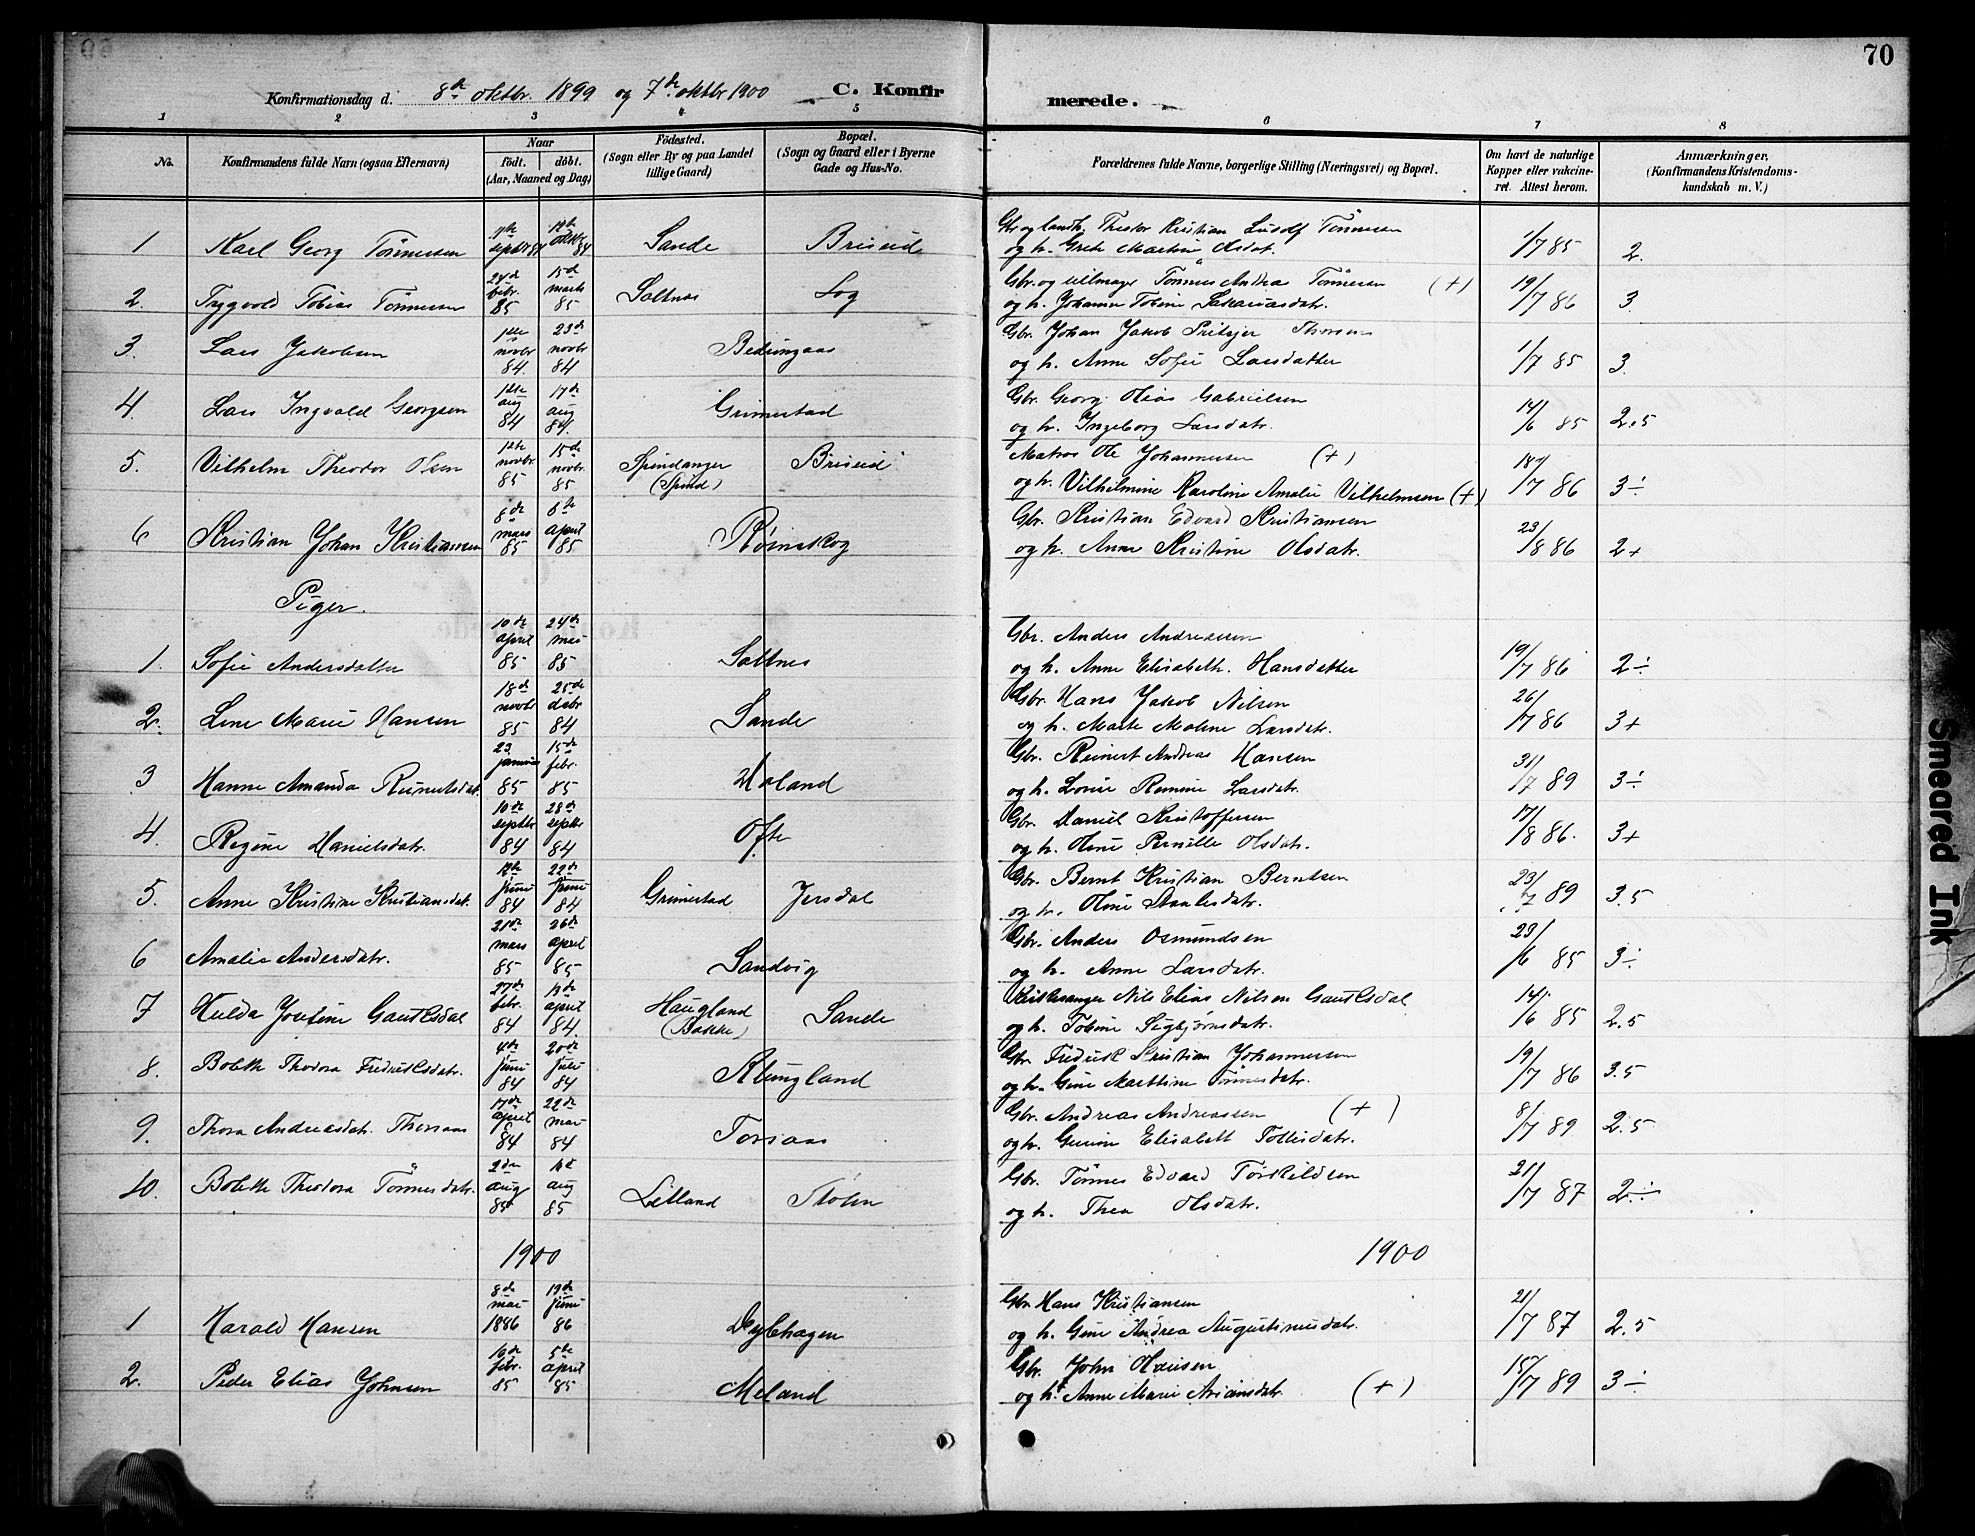 70
Konfirmationsdag d. 8de oktbr. 1899 og 7de oktbr 1900 C. Konfirmerede.
1 2 3 4 5 6 7 8
No. Konfirmandens fulde Navn (ogsaa Efternavn) Naar født. døbt. (Aar, Maaned og Dag) Födested. (Sogn eller By og paa Landet tillige Gaard) Bopæl. (Sogn og Gaard eller i Byerne Gade og Hus-No. Forældrenes fulde Navne, borgerlige Stilling (Næringsvei) og Bopæl. Om havt de naturlige Kopper eller vakcineret. Attest herom. Anmærkninger, (Konfirmandens Kristendomskundskab m. V.)
1 Karl Georg Tönnesen septbr 84 oktbr 84 Sande Briseid Theodor Kristian Ludolf Tönnesen
og h. Grete Martine Olsdat. 1/7 85 2.
2. Trygvold Tobias Tönnesen 24de febr. 85 15de marts 85 Saltnes Log Gbr. og uhrmager Tönnes Andrea Tönnesen (+)
og h. Johanne Tobine Sakariasdatr. 19/7 86 3
3. Lars Jakobsen 1ste novbr 84. 23de novbr 84 Bedringaas Gbr. Johan Jakob Fritsjer Thorsen
og h. Anne Sofie Larsdatter 1/7 85 3.
4. Lars Ingvald Georgsen 12te aug 84 17de aug 84. Grimestad Gbr. Georg Olias Gabrielsen
og h. Ingeborg Larsdatr. 14/6 85 2.5
5. Vilhelm Theodor Olsen 12te novbr. 85 15de novbr. 85 Spindanger (Spind) Briseid Matros Ole Johannesen (+)
og h. Vilhelmine Karoline Amalie Vilhelmsen (+) 18/7 86 3÷
6 Kristian Johan Kristiansen mars 85 april 85 Römskog Gbr. Kristian Edvard Kristiansen
og h. Anne Kristine Olsdatr. 23/8 86 2+
Piger.
1. Sofie Andersdatter 10de april 85 24de mai 85 Saltnes Gbr. Anders Andreassen
og h. Anne Elisabeth Hansdatter 19/7 86 2÷
2. Lene Marie Hansen 18de novbr 85 25de debr 84 Sande Gbr. Hans Jakob Nilsen
og h. Marte Maline Larsdatr. 26/7 86 3+
3 Hanne Amanda Reinertsdat. 23. januar 85 15de febr. 85 Höland Gbr. Reinert Andreas Hansen
og h. Lovise Ramine Larsdatr. 31/7 89 3÷
4. Regine Danielsdatr. 10de septbr 84 28de septbr 84 Ofte Gbr. Daniel Kristoffersen
og h. Oline Pernille Olsdatr. 17/8 86. 3+
5. Anne Kristine Kristiansdat. 12te juni 84 22de juni 84 Grimestad Jersdal Gbr. Bernt Kristian Berntsen
og h. Oline Staalesdatr. 23/7 89 3.5
6 Amalie Andersdatr. 21de mars 85 26de april 85 Sandvig Gbr. Anders Osmundsen
og h. Anne Larsdatr. 23/6 85 3÷
7 Hulda Josefine Gautesdal 27de febr. 84 13de april 84. Haugland (Bakke) Sande Kirkesanger Nils Elias Nilsen Gautesdal
og h. Tobine Sigbjørnsdatr. 14/6 85 2.5
8. Bolette Theodora Fredriksdatr. 4de juni 84 20de juli 84 Klungland Gbr. Fredrik Kristian Johannessen
og h. Gine Marthine Tönnesdatr. 19/7 86 3.5
9. Thora Andreasdatr. Thorsaas 17de april 84 22de mai 84 Torsaas Gbr. Andreas Andreassen (+)
og h. Gunine Elisabeth Tollisdatr. 8/7 89 2.5
10. Bolette Theodora Tönnesdatr. 2den aug 85 aug 85 Letland Stølen Gbr. Tönnes Edvard Torkildsen
og h. Thea Olsdatr. 21/7 87 2÷
1900 1900
1 Harald Hansen 8de mai 1886 13de juni 86 Dybhagen Gbr Hans Kristiansen
og h. Gine Andrea Augustinusdatr. 21/7 87 2.5
2. Peder Elias Johnsen febr. 85 5te april 85 Meland Gbr. John Hansen
og h. Anne Marie Ariansdatr. (+) 15/7 89 3÷
Smeared Ink